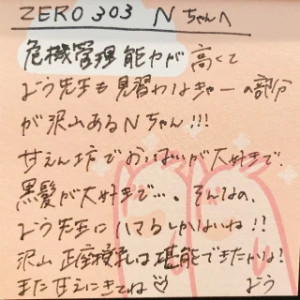 ZERO 303 Nちゃんへ
危機管理能力が高くて
よう先生も見習わなきゃーの部分
が沢山あるNちゃん!!!
甘えん坊でおっぱいが大好きで、
黒髪が大好きで…。そんなの、
よう先生にハマるしかないね!!
沢山 正座授乳は堪能できたかな!
また甘えにきてね♡ よう